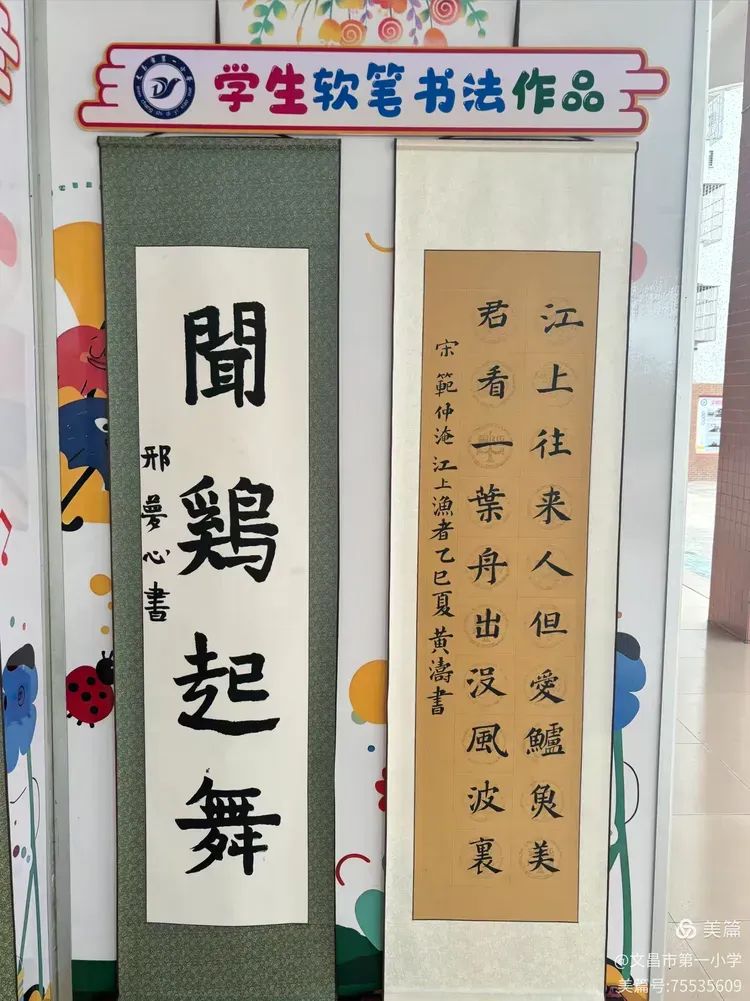 学生软笔书法作品
聞鷄起舞
邢夢心書
江上往来人但愛鱸魚美
君看一葉舟出没風波裏
宋範仲淹江上漁者乙巳夏黄濤書
美篇
@文昌市第一小学
美篇号:75535609